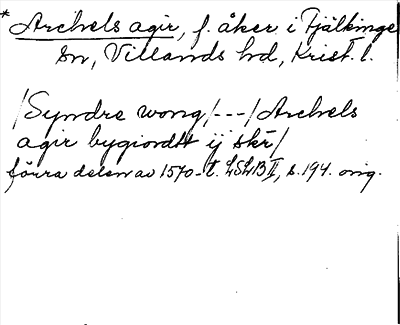 * Archels agir, f. åker i Fjälkinge
sn, Villands hd, Krist. l.
/Syndre wong/---/Archels
agir bygiordtt ij skr/
förra delen av 1570-t. LSLB II, s. 194. orig.